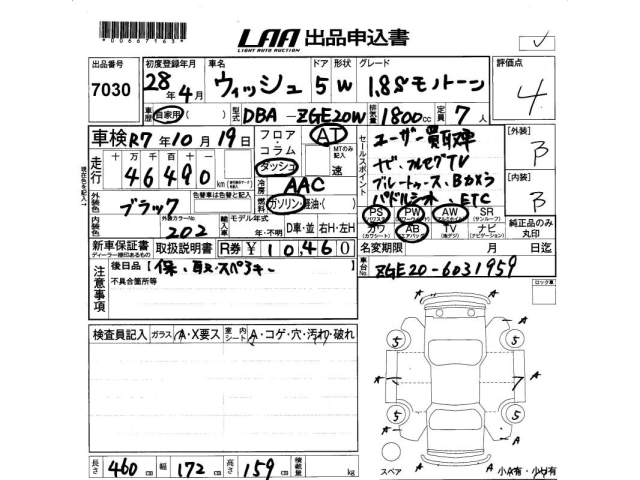 *00667163*
LAA 出品申込書
LIGHT AUTO AUCTION
出品番号 初度登録年月 車名 ドア 形状 グレード 評価点
7030 28年4月 ウィッシュ 5 W 1.8Sモノトーン 4
車歴 自家用 ( ) 型式 DBA-ZGE20W 排気量 1800cc 定員 7人
車検 R7年10月19日 フロア・コラム・ダッシュ AT MTのみ記入 速
走行 十万 万 千 百 十 46490 km
現在の色を記入 外装色 ブラック 色替車は色替と記入
内装色 外装カラーNo. 202
冷房 AAC
燃料 ガソリン・軽油・( )
輸入車 モデル年式 年・不明 D車・並 右H・左H
セールスポイント ユーザー買取車
ナビ、フルセグTV
ブルートゥース、Bカメラ
パドルシフト、ETC
PS (パワステ) PW (パワーウインド) AW (アルミホイール) SR (サンルーフ)
カワ (カワシート) AB (エアバッグ) TV (地デジ) ナビ (ナビゲーション) 純正品のみ丸印
[外装] B
[内装] B
新車保証書 ディーラー捺印あるもの 取扱説明書 R券 ¥10,460 名変期限 月 日迄
注意事項 後日品 [保、取、スペアキー ]
不具合箇所等
車台No. ZGE20-6031959 ロック車
検査員記入 ガラス A・X要ス 室内シート A・コゲ・穴・汚れ・破れ
A
A
5 5
A A
7 A
5 5
A A
A
A A
スペア 小A有・小U有
長さ 460 cm 幅 172 cm 高さ 159 cm 積載量 kg